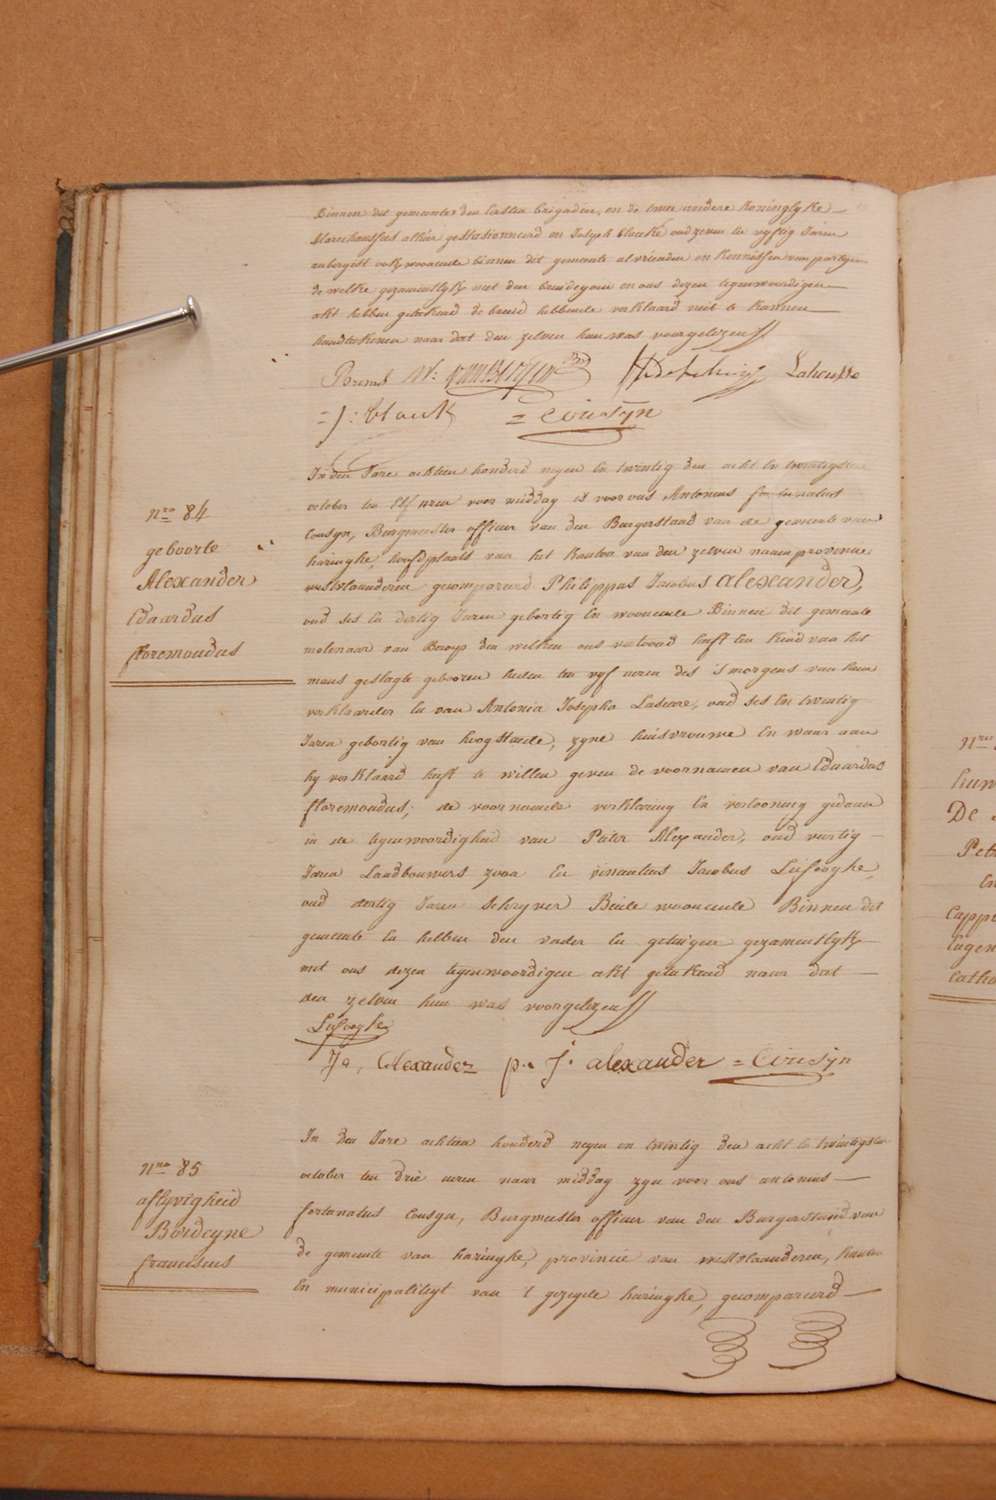 Binnen dit gemeente den lasten brigadier, en de twee andere Koninglyke
Marechaussees alhier gestationneerd en Joseph Blaeke oud zeven en vyftig Jaren
ook woonende binnen dit gemeente al vrienden en kennissen van partyen
de welke gezamentlyk met den bruidegom en ons dezen tegenwoordigen
akt hebben geteekend de bruid hebbende verklaard niet te konnen
handteekenen naer dat den zelven hun was voorgelezen //
Lahousse
= J: Blaeck = Cousyn
In den Jare achtien honderd negen en twintig den acht en twintigsten
october ten elf uren voor middag is voor ons Antonius fortunatus
Cousyn, Burgmeester officier van den Burgerstand van de gemeente van
haringhe, hoofdplaats van het kanton van den zelven naam provincie
westvlaanderen gecompareerd Philippus Jacobus alexander,
oud ses en dertig Jaren gebortig en woonende Binnen dit gemeente
molenaar van Beroep den welken ons vertoond heeft een kind van het
mans geslagte gebooren heden ten vyf uren des 's morgens van hem
verklaarder en van Antonia Josepha Lasure, oud ses en twintig
Jaren gebortig van hoogstaede, zyne huisvrouwe en waar aan
hy verklaard heeft te willen geven de voornamen van Eduardus
floremondus; de voornoemde verklaring en vertooning gedaan
in de tegenwoordigheid van Pieter Alexander, oud veertig
Jaren Landbouwers zoon en vinantius Jacobus Liefooghe,
oud dertig Jaren Schryver Beide woonende Binnen dit
gemeente en hebben den vader en getuigen gezamentlyk
met ons dezen tegenwoordigen akt geteekend naar dat
den zelven hun was voorgelezen //
Liefooghe
Ja, Alexander p. J. alexander = Cousyn
In den Jare achtien honderd negen en twintig den acht en twintigsten
october ten drie uren naer middag zyn voor ons antonius
fortunatus Cousyn, Burgmeester officier van den Burgerstand van
de gemeente van haringhe, provincie van westvlaanderen, kanton
en municipaliteyt van 't gezegde haringhe, gecompareerd
nro 84
geboorte
Alexander
Eduardus
floremondus
nro 85
aflyvigheid
Bordeyne
franciscus
nro
De
Pet
En
Cappe
Eugen
Catho